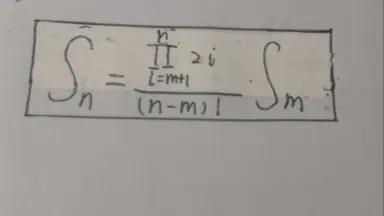 ∫n = ∏_{i=m+1}^{n} 2i / (n-m)! ∫m